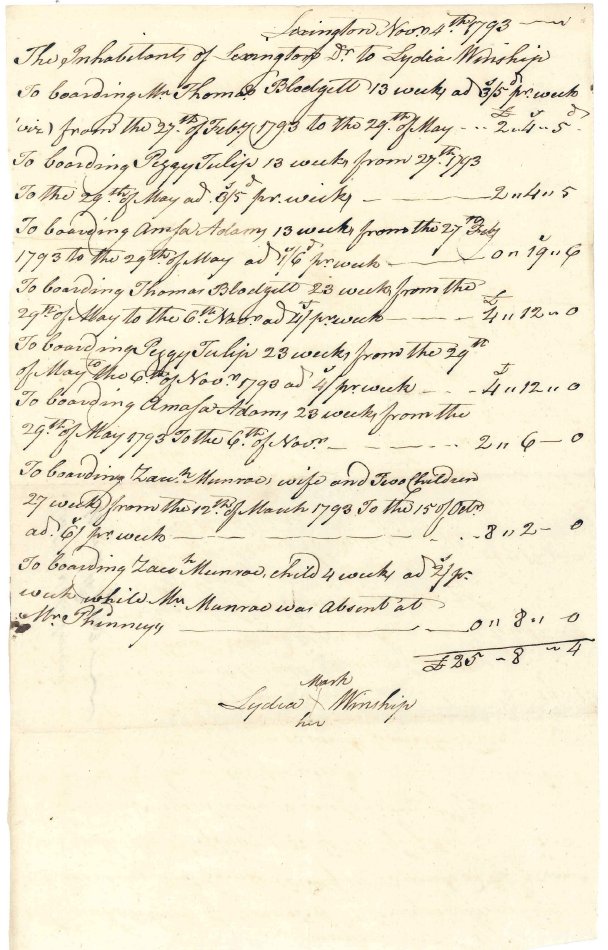 Lexington Novr 4th 1793
The Inhabitants of Lexington Dr to Lydia Winship
To boarding Mr Thomas Blodgett 13 weeks ad 3/5 pr week
viz) from the 27th of Feby 1793 to the 29th of May --- £2 " 4 - 5d
To boarding Peggy Tulip 13 weeks from 27th 1793
To the 29th of May ad 3/5 pr week — 2 " 4 " 5
To boarding Amasa Adams 13 weeks from the 27th Feby
1793 to the 29th of May ad 1/6 pr week — 0 " 19 " 6
To boarding Thomas Blodgett 23 weeks from the
29th of May to the 6th Novr ad 4/ pr week - - - £4 " 12 - 0
To boarding Peggy Tulip 23 weeks from the 29th
of May to the 6th of Novr 1793 ad 4/ pr week - - - 4 " 12 " 0
To boarding Amasa Adams 23 weeks from the
29th of May 1793 To the 6th of Novr — 2 " 6 — 0
To boarding Zacrh Munroe, wife and Two Children
27 weeks from the 12th of March 1793 To the 15 of Octr
ad 6/ pr week — 8 " 2 - 0
To boarding Zacrh Munroe, child 4 weeks ad 2/ pr
week while Mr Munroe was absent at
Mr Phinneys — 0 " 8 " 0
£25 - 8 - 4
Mark
Lydia X Winship
her